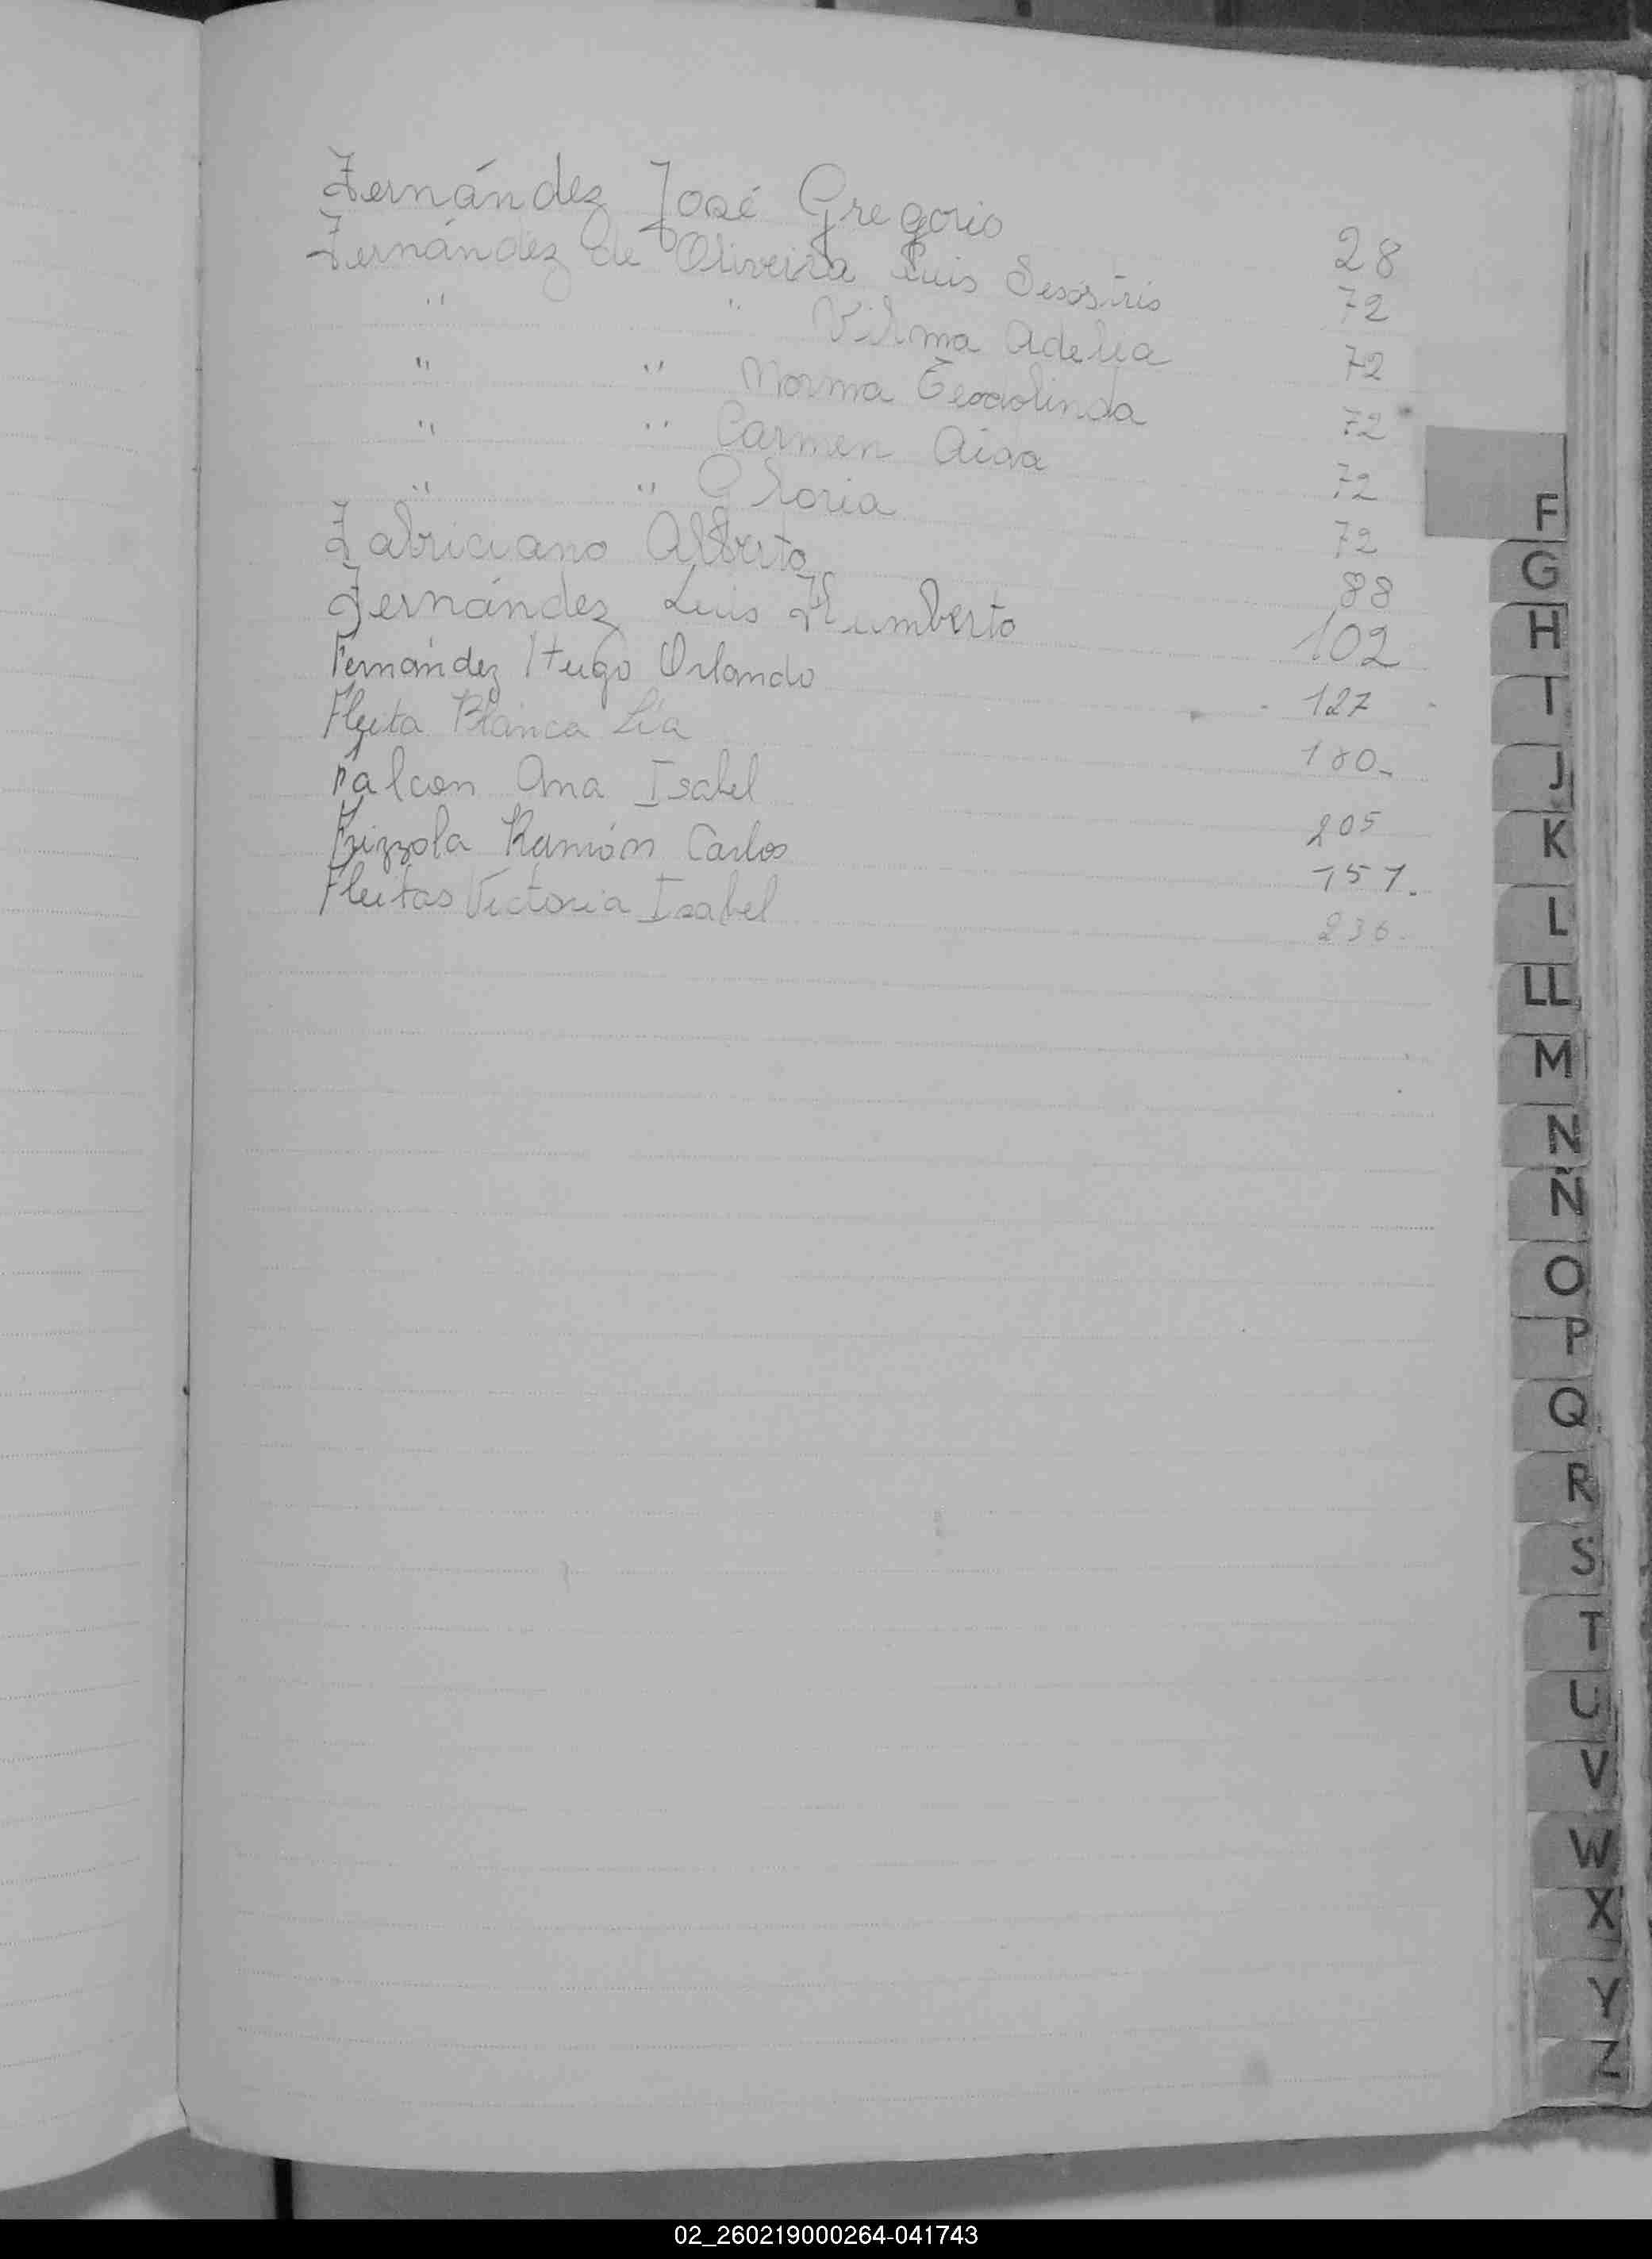 Fernández José Gregorio 28
Fernández de Oliveira Luis Sesostris 72
" " Vilma Adelia 72
" " Norma Teodolinda 72
" " Carmen Aida 72
" " Gloria 72
Fabriciano Alberto 88
Fernández Luis Humberto 102
Fernández Hugo Orlando 127
Fleita Blanca Lía 180-
Falcon Ana Isabel 205
Frizzola Ramón Carlos 151.
Fleitas Victoria Isabel 236.
F
G
H
I
J
K
L
LL
M
N
Ñ
O
P
Q
R
S
T
U
V
W
X
Y
Z
02_260219000264-041743